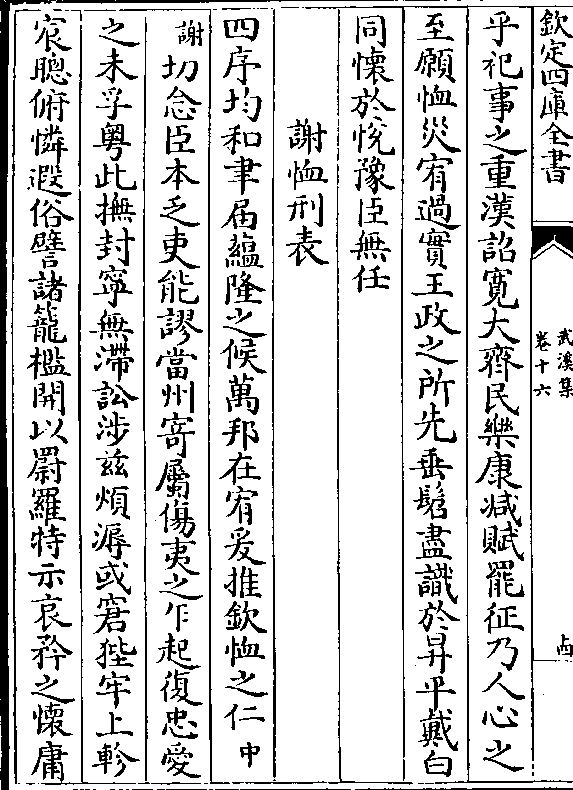 欽定四庫全書
武溪集
卷十六
乎祀事之重漢詔寬大齊民樂康減賦罷征乃人心之
至願恤災宥過實王政之所先垂髫盡識於昇平戴白
同懷於悅豫臣無任
謝恤刑表
四序均和聿届蘊隆之候萬邦在宥爰推欽恤之仁中
謝切念臣本乏吏能謬當州寄屬傷夷之乍起復忠愛
之未孚粤此撫封寧無滯訟涉兹煩溽或窘狴牢上軫
宸聰俯憐遐俗譬諸籠檻開以罻羅特示哀矜之懷庸